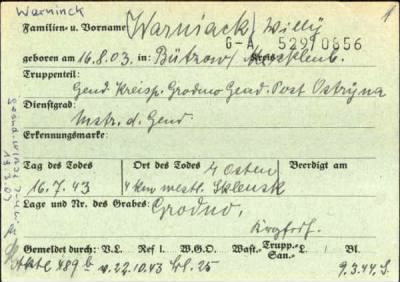 Warninck
1
Familien- u. Vorname Warniack, Willy
G-A 529/0856
geboren am 16.8.03 in: Bützow / Kreis: Mecklenb.
Truppenteil:
Gend. Kreisp. Grodno Gend. Post Ostryna
Dienstgrad:
Mstr. d. Gend
Erkennungsmarke:
Tag des Todes Ort des Todes Beerdigt am
Osten
16.7.43 4 km westl. Sklensk
Lage und Nr. des Grabes: Grodno,
Gemeldet durch: V.L. Ref I. W.G.O. Wast.- Trupp.- San.- L. Bl.
Akte 489 b v. 22.10.43 Bl. 25 9.3.44. S.